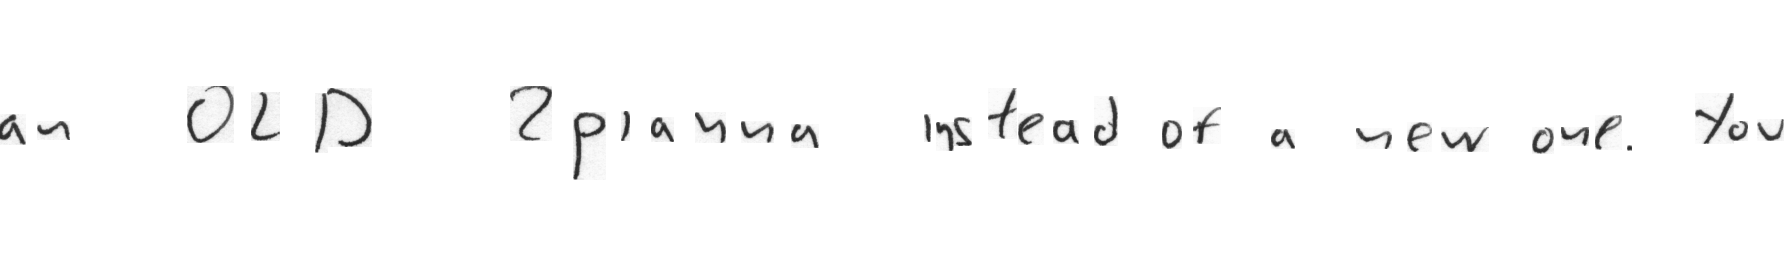 an OLD 2pianna instead of a new one. You